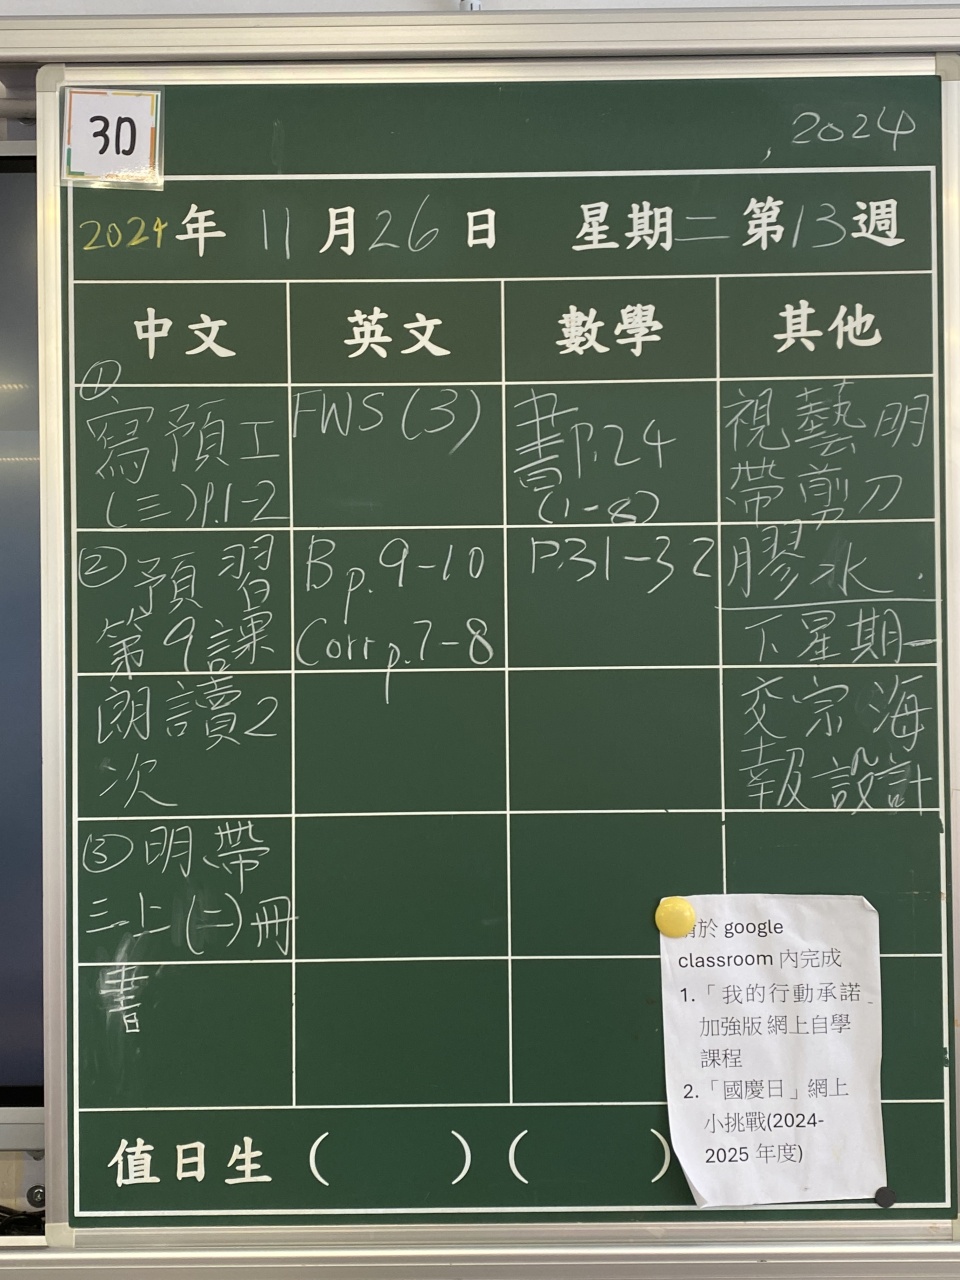 3D
, 2024
2024年 11月26日 星期二第13週
中文
①
寫預工
(三)P.1-2
②預習
第9課
朗讀2
次
③明帶
三上(二)冊
書
英文
FWS(3)
B p.9-10
Corr p.7-8
數學
書P.24
(1-8)
P.31-32
其他
視藝明
帶剪刀
膠水.
下星期一
交宗海
報設計
請於 google
classroom 內完成
1.「我的行動承諾
加強版 網上自學
課程
2.「國慶日」網上
小挑戰(2024-
2025 年度)
值日生 (      ) (      )